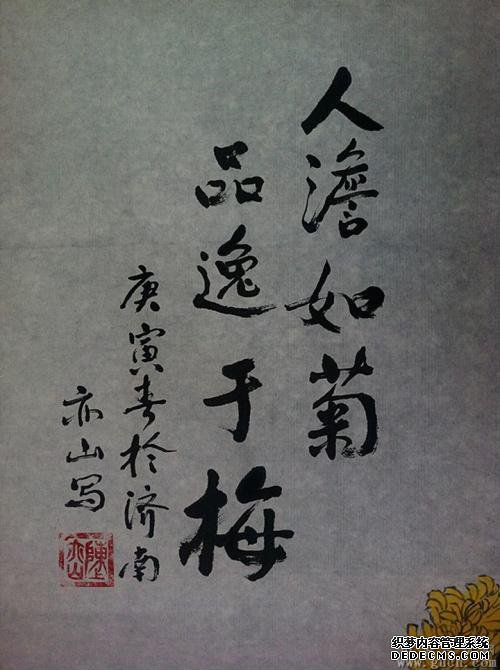 人澹如菊
品逸于梅
庚寅春於济南
亦山写
陳亦山
织梦内容管理系统
DEDECMS.COM